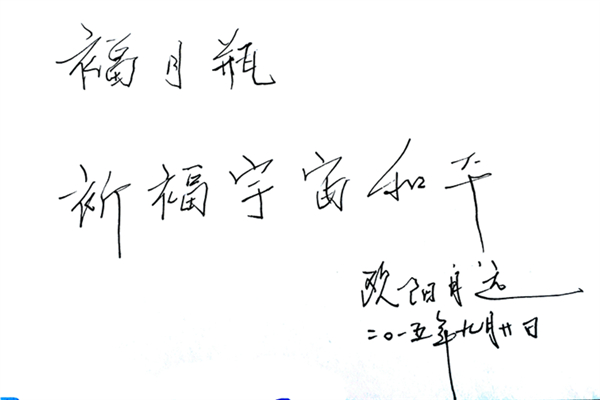 福月瓶
祈福宇宙和平
欧阳自远
二〇一五年九月廿日